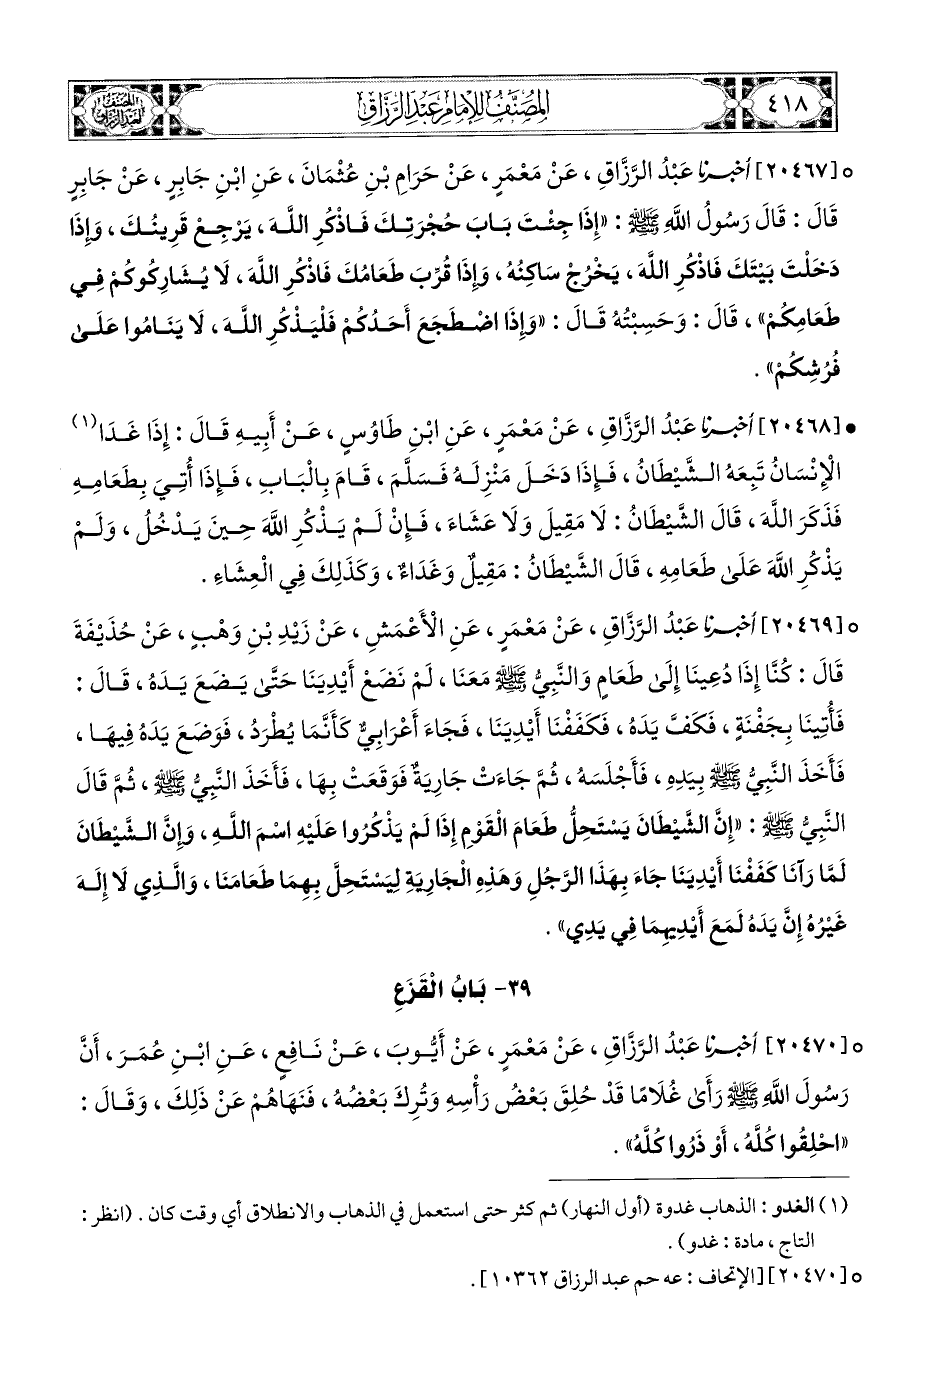 ٤١٨
المُصَنَّفُ لِلإِمَامِ عَبْدِ الرَّزَّاقِ
المصنف لعبد الرزاق
○ [٢٠٤٦٧] أخبرنا عَبْدُ الرَّزَّاقِ، عَنْ مَعْمَرٍ، عَنْ حَرَامِ بْنِ عُثْمَانَ، عَنِ ابْنِ جَابِرٍ، عَنْ جَابِرٍ
قَالَ : قَالَ رَسُولُ اللَّهِ ﷺ : «إِذَا جِئْتَ بَابَ حُجْرَتِكَ فَاذْكُرِ اللَّهَ، يَرْجِعْ قَرِينُكَ، وَإِذَا
دَخَلْتَ بَيْتَكَ فَاذْكُرِ اللَّهَ، يَخْرُجْ سَاكِنُهُ، وَإِذَا قُرِّبَ طَعَامُكَ فَاذْكُرِ اللَّهَ، لَا يُشَارِكُوكُمْ فِي
طَعَامِكُمْ»، قَالَ : وَحَسِبْتُهُ قَالَ : «وَإِذَا اضْطَجَعَ أَحَدُكُمْ فَلْيَذْكُرِ اللَّهَ، لَا يَنَامُوا عَلَىٰ
فُرُشِكُمْ» .
● [٢٠٤٦٨] أخبرنا عَبْدُ الرَّزَّاقِ، عَنْ مَعْمَرٍ، عَنِ ابْنِ طَاوُسٍ، عَنْ أَبِيهِ قَالَ : إِذَا غَدَا(١)
الْإِنْسَانُ تَبِعَهُ الشَّيْطَانُ، فَإِذَا دَخَلَ مَنْزِلَهُ فَسَلَّمَ، قَامَ بِالْبَابِ، فَإِذَا أُتِيَ بِطَعَامِهِ
فَذَكَرَ اللَّهَ، قَالَ الشَّيْطَانُ : لَا مَقِيلَ وَلَا عَشَاءَ، فَإِنْ لَمْ يَذْكُرِ اللَّهَ حِينَ يَدْخُلُ، وَلَمْ
يَذْكُرِ اللَّهَ عَلَىٰ طَعَامِهِ، قَالَ الشَّيْطَانُ : مَقِيلٌ وَغَدَاءٌ، وَكَذَلِكَ فِي الْعِشَاءِ .
○ [٢٠٤٦٩] أخبرنا عَبْدُ الرَّزَّاقِ، عَنْ مَعْمَرٍ، عَنِ الْأَعْمَشِ، عَنْ زَيْدِ بْنِ وَهْبٍ، عَنْ حُذَيْفَةَ
قَالَ : كُنَّا إِذَا دُعِينَا إِلَىٰ طَعَامٍ وَالنَّبِيُّ ﷺ مَعَنَا، لَمْ نَضَعْ أَيْدِيَنَا حَتَّىٰ يَضَعَ يَدَهُ، قَالَ :
فَأُتِينَا بِجَفْنَةٍ، فَكَفَّ يَدَهُ، فَكَفَفْنَا أَيْدِيَنَا، فَجَاءَ أَعْرَابِيٌّ كَأَنَّمَا يُطْرَدُ، فَوَضَعَ يَدَهُ فِيهَا،
فَأَخَذَ النَّبِيُّ ﷺ بِيَدِهِ، فَأَجْلَسَهُ، ثُمَّ جَاءَتْ جَارِيَةٌ فَوَقَعَتْ بِهَا، فَأَخَذَ النَّبِيُّ ﷺ، ثُمَّ قَالَ
النَّبِيُّ ﷺ : «إِنَّ الشَّيْطَانَ يَسْتَحِلُّ طَعَامَ الْقَوْمِ إِذَا لَمْ يَذْكُرُوا عَلَيْهِ اسْمَ اللَّهِ، وَإِنَّ الشَّيْطَانَ
لَمَّا رَآنَا كَفَفْنَا أَيْدِيَنَا جَاءَ بِهَذَا الرَّجُلِ وَهَذِهِ الْجَارِيَةِ لِيَسْتَحِلَّ بِهِمَا طَعَامَنَا، وَالَّذِي لَا إِلَهَ
غَيْرُهُ إِنَّ يَدَهُ لَمَعَ أَيْدِيهِمَا فِي يَدِي» .
٣٩- بَابُ الْقَزَعِ
○ [٢٠٤٧٠] أخبرنا عَبْدُ الرَّزَّاقِ، عَنْ مَعْمَرٍ، عَنْ أَيُّوبَ، عَنْ نَافِعٍ، عَنِ ابْنِ عُمَرَ، أَنَّ
رَسُولَ اللَّهِ ﷺ رَأَىٰ غُلَامًا قَدْ حُلِقَ بَعْضُ رَأْسِهِ وَتُرِكَ بَعْضُهُ، فَنَهَاهُمْ عَنْ ذَلِكَ، وَقَالَ :
«احْلِقُوا كُلَّهُ، أَوْ ذَرُوا كُلَّهُ» .
(١) الغدو : الذهاب غدوة (أول النهار) ثم كثر حتى استعمل في الذهاب والانطلاق أي وقت كان . (انظر :
التاج، مادة : غدو) .
○ [٢٠٤٧٠] [الإتحاف : عه حم عبد الرزاق ١٠٣٦٢] .